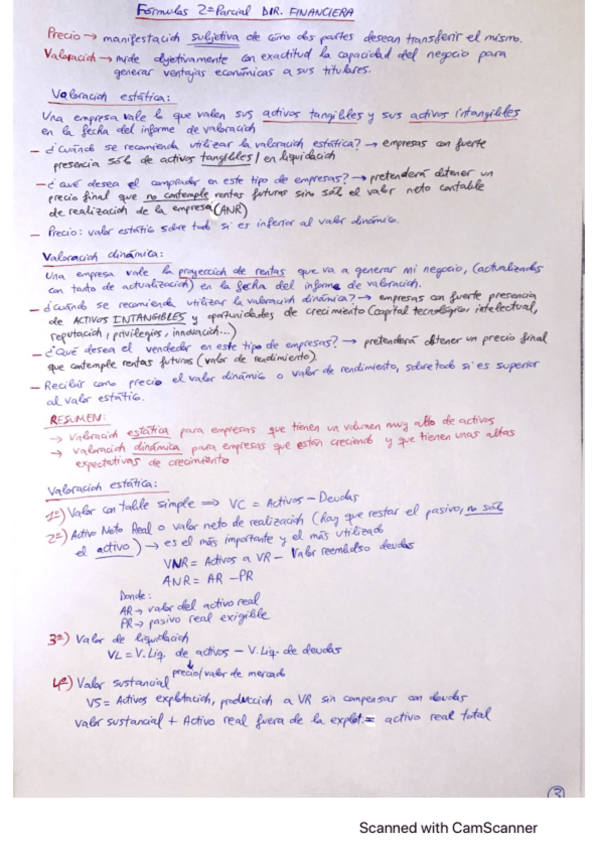 Formulas 2º Parcial DIR. FINANCIERA
Precio → manifestación subjetiva de cómo dos partes desean transferir el mismo.
Valoración → mide objetivamente con exactitud la capacidad del negocio para
generar ventajas económicas a sus titulares.
Valoración estática:
Una empresa vale lo que valen sus activos tangibles y sus activos intangibles
en la fecha del informe de valoración
- ¿Cuándo se recomienda utilizar la valoración estática? → empresas con fuerte
presencia sólo de activos tangibles / en liquidación
- ¿Qué desea el comprador en este tipo de empresas? → pretenderá obtener un
precio final que no contemple rentas futuras sino sólo el valor neto contable
de realización de la empresa (ANR)
- Precio: valor estático sobre todo si es inferior al valor dinámico.
Valoración dinámica:
Una empresa vale la proyección de rentas que va a generar mi negocio, (actualizados
con tanto de actualización) en la fecha del informe de valoración.
- ¿Cuándo se recomienda utilizar la valoración dinámica? → empresas con fuerte presencia
de ACTIVOS INTANGIBLES y oportunidades de crecimiento (capital tecnológico, intelectual,
reputación, privilegios, innovación...)
- ¿Qué desea el vendedor en este tipo de empresas? → pretenderá obtener un precio final
que contemple rentas futuras (valor de rendimiento)
- Recibir como precio el valor dinámico o valor de rendimiento, sobre todo si es superior
al valor estático.
RESUMEN:
→ Valoración estática para empresas que tienen un volumen muy alto de activos
→ valoración dinámica para empresas que están creciendo y que tienen unas altas
expectativas de crecimiento
Valoración estática:
1º) Valor contable simple ⇒ VC = Activos - Deudas
2º) Activo Neto Real o valor neto de realización (hay que restar el pasivo, no sólo
el activo) → es el más importante y el más utilizado
VNR = Activos a VR - Valor reembolso deudas
ANR = AR - PR
Donde:
AR → valor del activo real
PR → pasivo real exigible
3º) Valor de liquidación
VL = V. Liq. de activos - V. Liq. de deudas
↓
precio/valor de mercado
4º) Valor sustancial
VS = Activos explotación, producción a VR sin compensar con deudas
Valor sustancial + Activo real fuera de la explot. = activo real total
3
Scanned with CamScanner